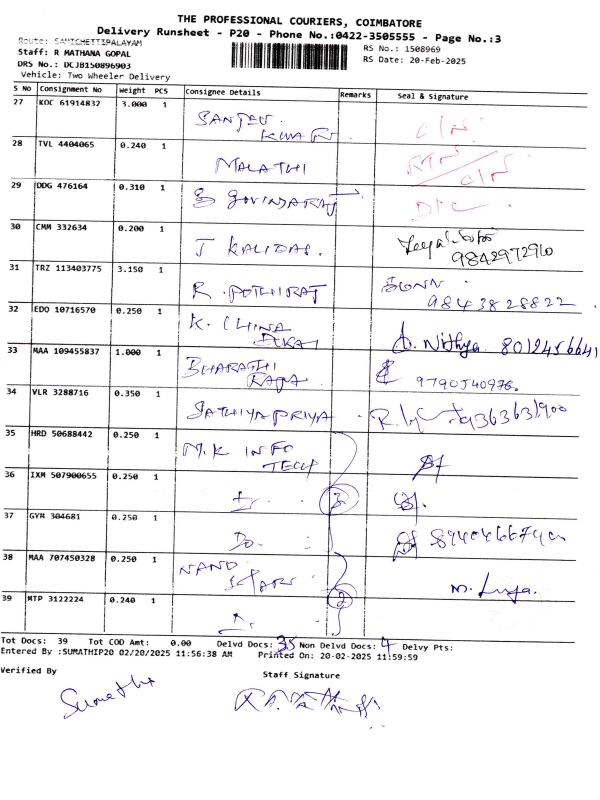 THE PROFESSIONAL COURIERS, COIMBATORE
Delivery Runsheet - P20 - Phone No.:0422-3505555 - Page No.:3
Route: SAMICHETTIPALAYAM
Staff: R MATHANA GOPAL
DRS No.: DCJB150896903
Vehicle: Two Wheeler Delivery
RS No.: 1508969
RS Date: 20-Feb-2025
S No Consignment No Weight PCS Consignee Details Remarks Seal & Signature
27 KOC 61914832 3.000 1 SANJEEV KUMAR
28 TVL 4404065 0.240 1 MALATHI
29 DDG 476164 0.310 1 GOVINDARAJ
30 CMM 332634 0.200 1 J KALIDAS. 9842972960
31 TRZ 113403775 3.150 1 R. POTHIRAJ 9843828822
32 EDO 10716570 0.250 1 K. CHINA Nithya. 8012456641
33 MAA 109455837 1.000 1 BHARATHI RAJA 9790540976.
34 VLR 3288716 0.350 1 SATHIYAPRIYA
35 HRD 50688442 0.250 1 M.K INFO TECH
36 IXM 507900655 0.250 1 3
37 GYR 304681 0.250 1 Do.
38 MAA 707450328 0.250 1 NAND
39 MTP 3122224 0.240 1 2
Tot Docs: 39 Tot COD Amt: 0.00 Delvd Docs: 35 Non Delvd Docs: 4 Delvy Pts:
Entered By :SUMATHIP20 02/20/2025 11:56:38 AM Printed On: 20-02-2025 11:59:59
Verified By Staff Signature
Sumathi